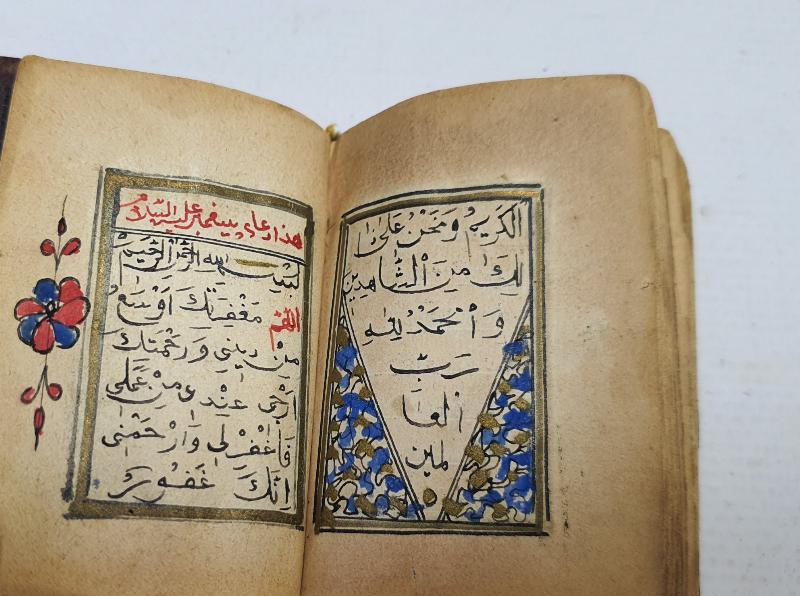 الكَرِيمُ وَنَحْنُ عَلَى
ذٰلِكَ مِنَ الْشَّاهِدِينَ
وَالْحَمْدُ لِلّٰهِ
رَبِّ
العَا
لَمِين
هذا دعاى پيغمبر عليه السلام
بسم الله الرحمن الرحيم
اللّهُمَّ مَغْفِرَتِكَ اَوْسَعُ
مِنْ دِيْنِي وَرَحْمَتِكَ
اَرْجَى عِنْدِى مِنْ عَمَلِى
فَاغْفِرْلِى وَارْحَمْنِى
اِنَّكَ غَفُورٌ